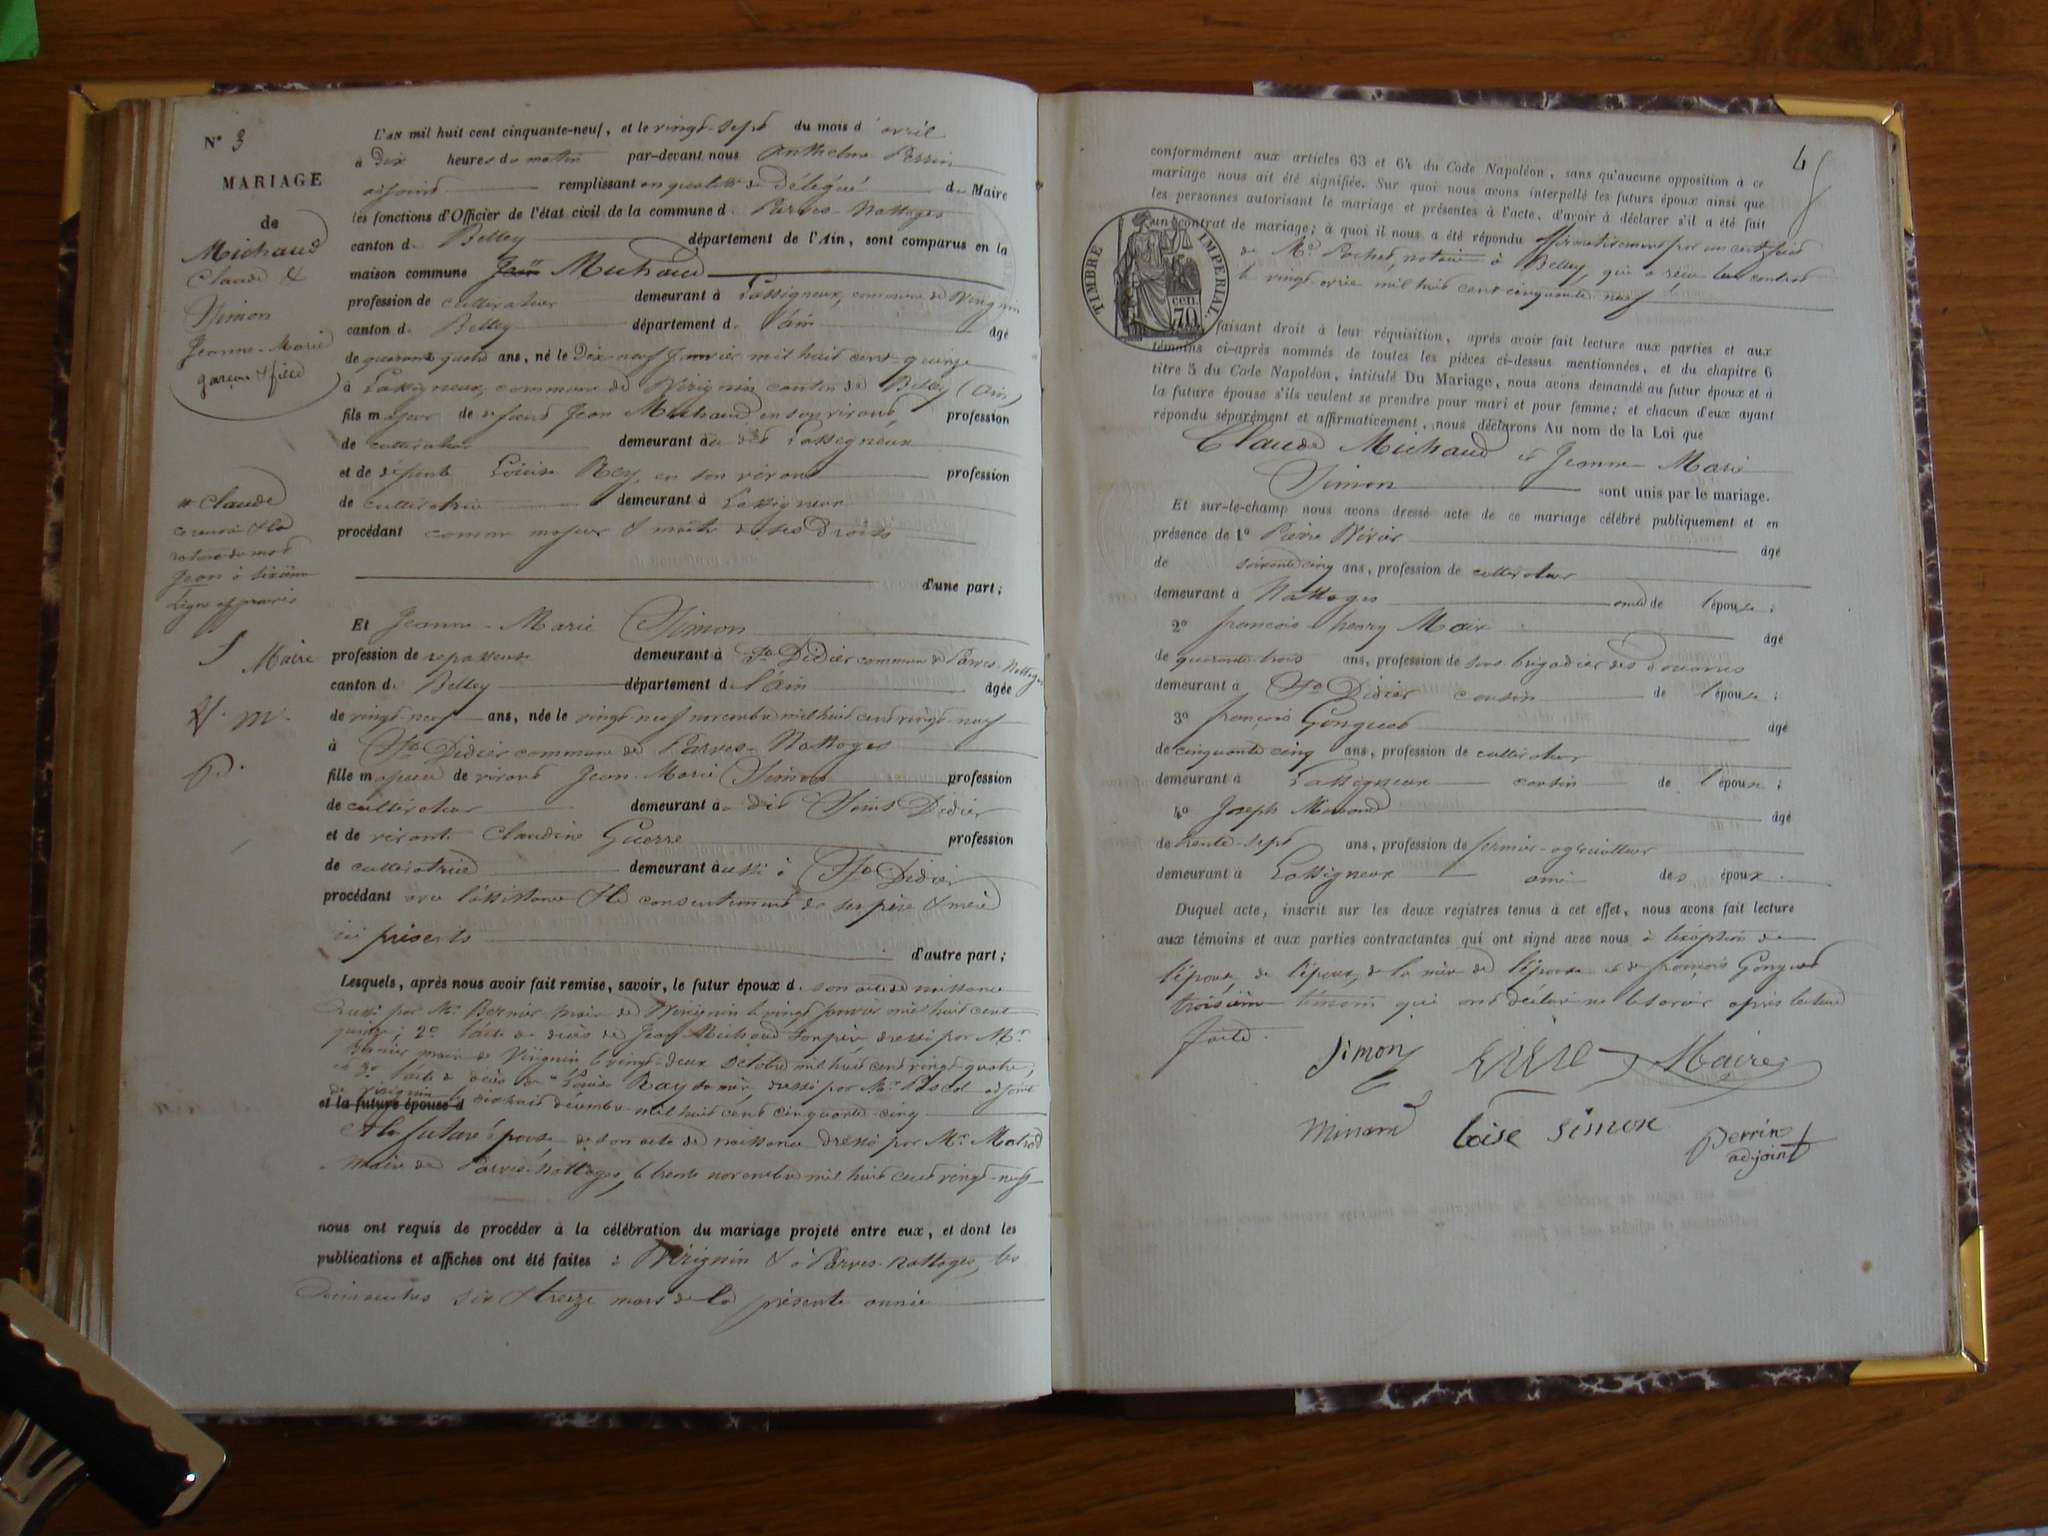 N° 3
MARIAGE
de
Michaud
Claude &
Simon
Jeanne-Marie
garçon & fille
L'an mil huit cent cinquante-neuf, et le vingt-sept du mois d'avril
à Dix heures du matin par-devant nous Anthelme Perrin
adjoint remplissant en qualité de Délégué du Maire
les fonctions d'Officier de l'état civil de la commune de Parves-Nattages
canton de Belley département de l'Ain, sont comparus en la
maison commune Jean Michaud
profession de cultivateur demeurant à Lassigneux, commune de Virignin
canton de Belley département de l'ain âgé
de quarante quatre ans, né le Dix-neuf Janvier mil huit cent quinze
à Lassigneux, commune de Virignin canton de Belley (Ain)
fils majeur de défunt Jean Michaud en son vivant profession
de cultivateur demeurant au dit Lassigneux
et de défunte Louise Rey, en son vivant profession
de cultivatrice demeurant à Lassigneux
procédant comme majeur & maître de ses Droits
d'une part;
# Claude
le renvoi & la
rature du mot
Jean à sixième
ligne approuvés
S Maire
V. m.
P.
Et Jeanne-Marie Simon
profession de repasseuse demeurant à St Didier commune de Parves-Nattages
canton de Belley département de l'ain âgée
de vingt-neuf ans, née le vingt neuf novembre mil huit cent vingt-neuf
à St Didier commune de Parves-Nattages
fille majeure de vivant Jean-Marie Simon profession
de cultivateur demeurant au dit Saint Didier
et de vivante Claudine Guerre profession
de cultivatrice demeurant aussi à St Didier
procédant avec l'assistance & le consentement de ses père & mère
ici présents
d'autre part;
Lesquels, après nous avoir fait remise, savoir, le futur époux de son acte de naissance
dressé par Mr Bernier maire de Virignin le vingt janvier mil huit cent
quinze; 2° l'acte de décès de Jean Michaud son père dressé par Mr
Bernier maire de Virignin le vingt-deux octobre mil huit cent vingt-quatre;
et 3° l'acte de décès de Louise Ray sa mère, dressé par Mr Pascal adjoint
de Virignin le dix huit décembre mil huit cent cinquante cinq
et la future épouse d
Et la future épouse, de son acte de naissance dressé par Mr
maire de Parves-Nattages, le trente novembre mil huit cent vingt-neuf
nous ont requis de procéder à la célébration du mariage projeté entre eux, et dont les
publications et affiches ont été faites à Virignin & à Parves-Nattages, les
Dimanches six & treize mars de la présente année
conformément aux articles 63 et 64 du Code Napoléon, sans qu'aucune opposition à ce
mariage nous ait été signifiée. Sur quoi nous avons interpellé les futurs époux ainsi que
les personnes autorisant le mariage et présentes à l'acte, d'avoir à déclarer s'il a été fait
un contrat de mariage; à quoi il nous a été répondu affirmativement par un certificat
de Me Pochet, notaire à Belley, qui a reçu leur contrat
le vingt-avril mil huit cent cinquante neuf
TIMBRE IMPÉRIAL.
cen.
70
faisant droit à leur réquisition, après avoir fait lecture aux parties et aux
témoins ci-après nommés de toutes les pièces ci-dessus mentionnées, et du chapitre 6
titre 5 du Code Napoléon, intitulé Du Mariage, nous avons demandé au futur époux et à
la future épouse s'ils veulent se prendre pour mari et pour femme; et chacun d'eux ayant
répondu séparément et affirmativement, nous déclarons Au nom de la Loi que
Claude Michaud et Jeanne-Marie
Simon sont unis par le mariage.
Et sur-le-champ nous avons dressé acte de ce mariage célébré publiquement et en
présence de 1° Pierre Virier âgé
de soixante cinq ans, profession de cultivateur
demeurant à Nattages oncle de l'épouse;
2° françois-henry Maire âgé
de quarante-trois ans, profession de sous brigadier des Douanes
demeurant à St Didier cousin de l'épouse;
3° françois Gonguet âgé
de cinquante cinq ans, profession de cultivateur
demeurant à Lassigneux cousin de l'époux;
4° Joseph âgé
de trente-sept ans, profession de fermier-agriculteur
demeurant à Lassigneux ami des époux.
Duquel acte, inscrit sur les deux registres tenus à cet effet, nous avons fait lecture
aux témoins et aux parties contractantes qui ont signé avec nous à l'exception de
l'époux, de l'épouse, de la mère de l'épouse et de françois Gonguet
troisième témoin qui ont déclaré ne le savoir après lecture
faite.
Simon Maire
Loise Simon Perrin
adjoint